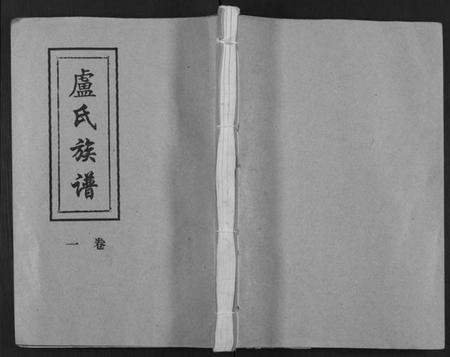 盧氏族谱
卷一